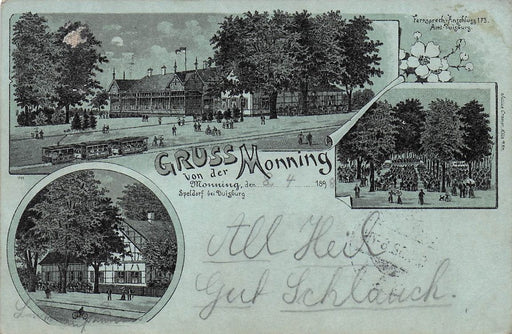 Fernsprech-Anschluss 173.
Amt Duisburg.
GRUSS
von der
Monning
Monning, den 3 4 189
Speldorf bei Duisburg
All Heil
Gut Schlauch.